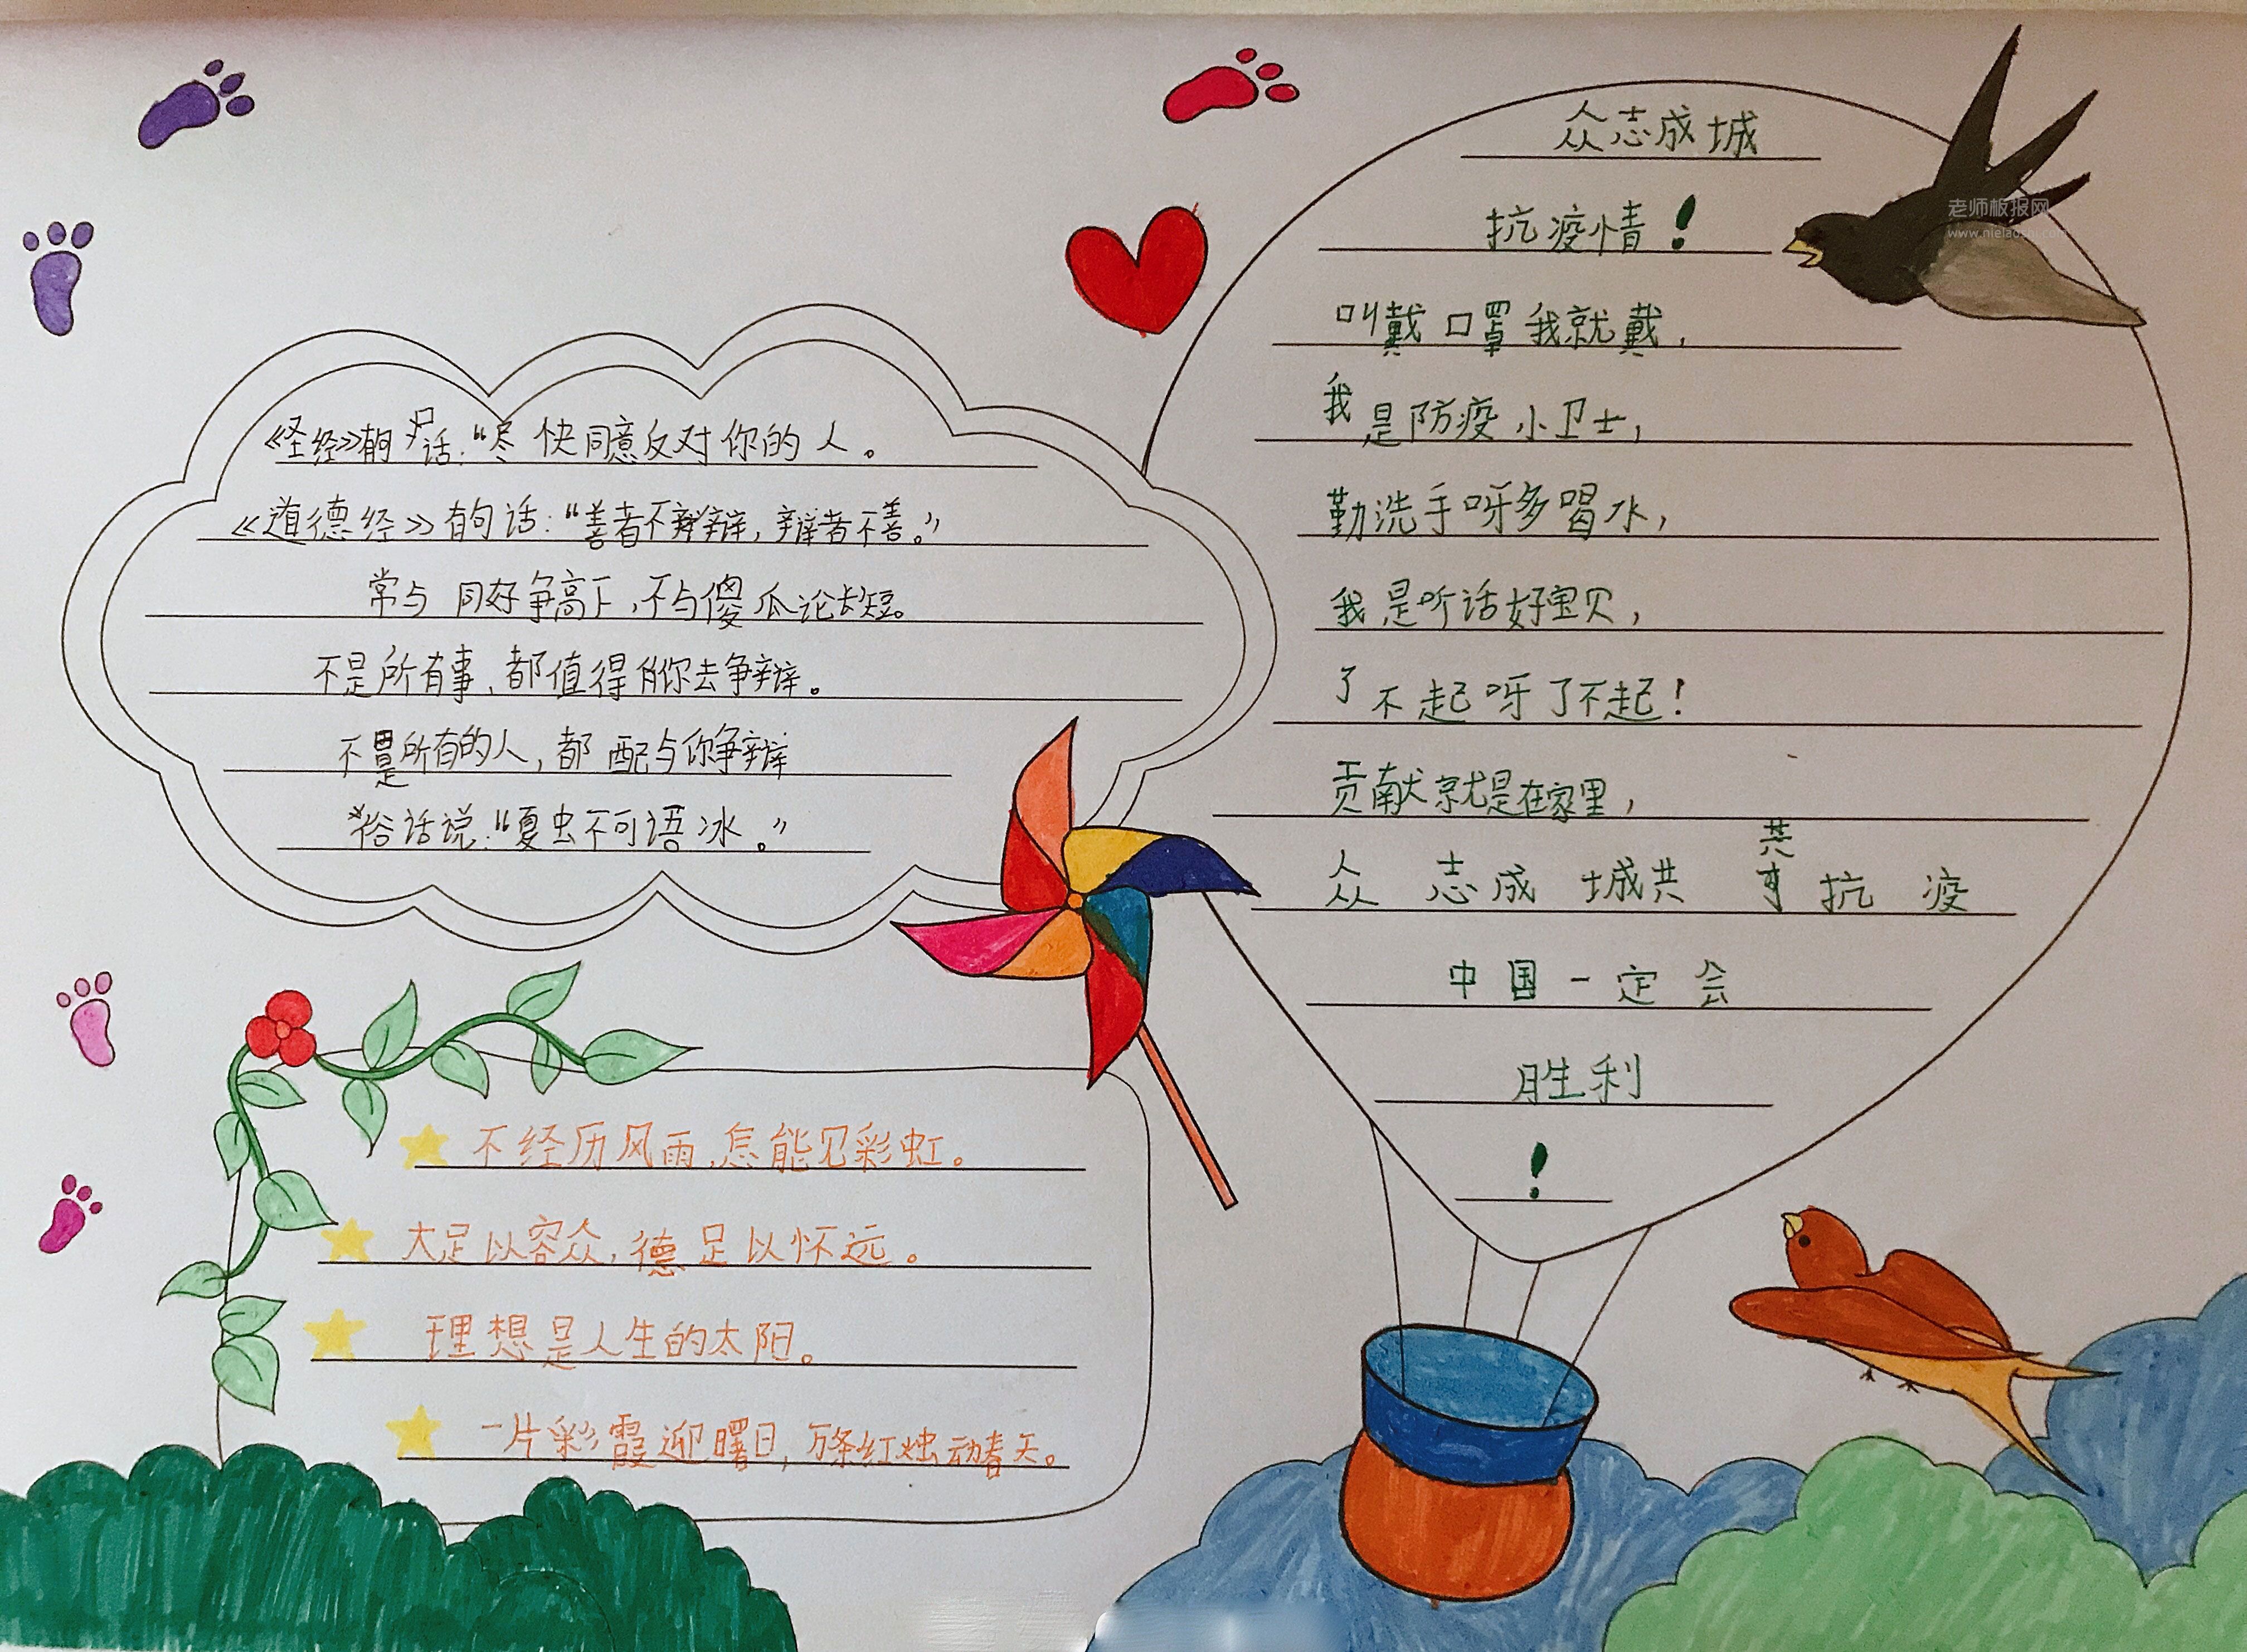 《圣经》有句话:“尽快同意反对你的人。
《道德经》有句话:“善者不辩,辩者不善。”
常与同好争高下,不与傻瓜论长短。
不是所有事,都值得你去争辩。
不是所有的人,都配与你争辩
俗话说:“夏虫不可语冰。”
不经历风雨,怎能见彩虹。
大足以容众,德足以怀远。
理想是人生的太阳。
一片彩霞迎曙日,万条红烛动春天。
众志成城
抗疫情!
叫戴口罩我就戴,
我是防疫小卫士,
勤洗手呀多喝水,
我是听话好宝贝,
了不起呀了不起!
贡献就是在家里,
众志成城共共抗疫
中国一定会
胜利
!
老师板报网